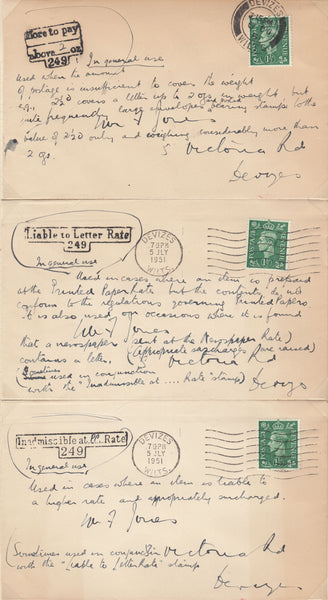 More to pay
above 2 oz
249
In general use
DEVIZES
WILTS
Used when the amount
of postage is insufficient to cover the weight
e.g. 2½D covers a letter up to 2 ozs in weight, but
quite frequently large envelopes are posted bearing stamps to the
value of 2½D only and weighing considerably more than
2 ozs.
Mr F Jones
5 Victoria Rd
Devizes
Liable to Letter Rate
249
In general use
DEVIZES
7 30 PM
5 JLY
1951
WILTS.
Used in cases where an item is prepaid
at the Printed Paper Rate but the contents do not
conform to the regulations governing Printed Papers
It is also used on occasions where it is found
that a newspaper (sent at the Newspaper Rate)
contains a letter. (Appropriate surcharges are raised)
(Sometimes used in conjunction
with the "Inadmissible at .... Rate" stamps)
Mr F Jones
Victoria Rd
Devizes
Inadmissible at Rate
249
In general use
DEVIZES
7 30 PM
5 JLY
1951
WILTS.
Used in cases where an item is liable to
a higher rate and appropriately surcharged.
Mr F Jones
(Sometimes used in conjunction
with the "Liable to Letter Rate" stamps
Victoria Rd
Devizes